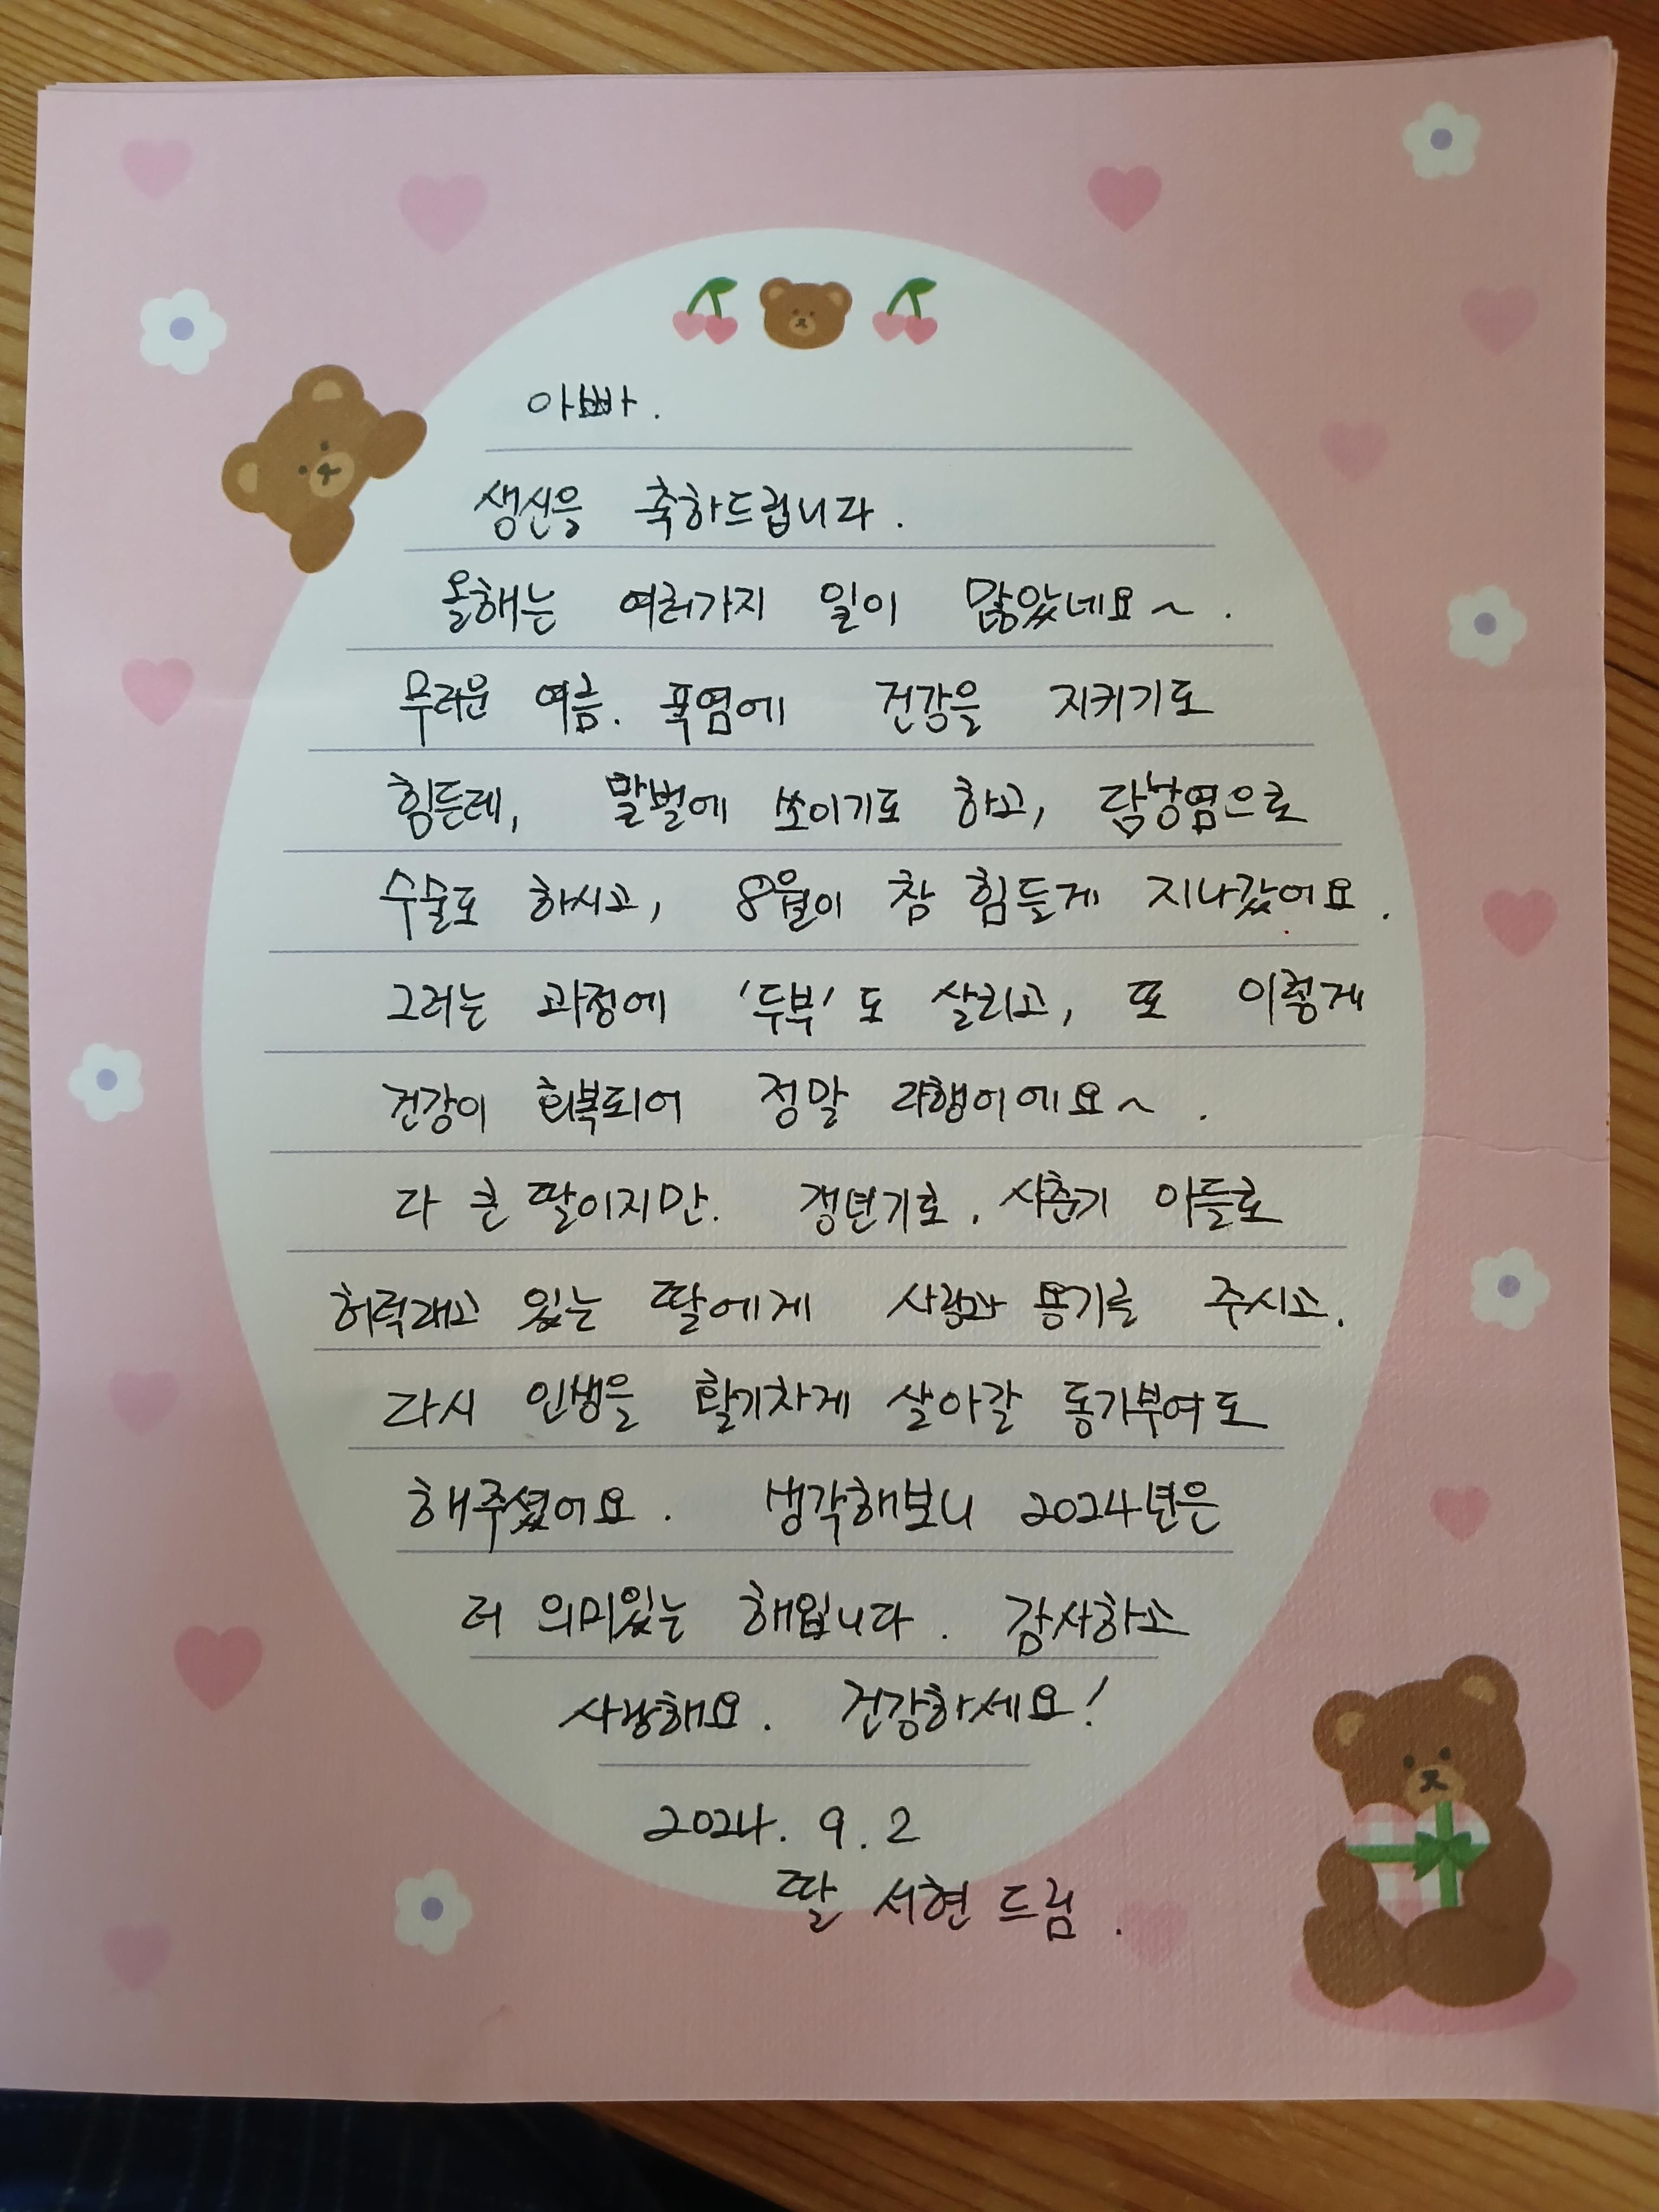 아빠.
생신을 축하드립니다.
올해는 여러가지 일이 많았네요~.
무더운 여름. 폭염에 건강을 지키기도
힘든데, 말벌에 쏘이기도 하고, 담낭염으로
수술도 하시고, 8월이 참 힘들게 지나갔어요.
그러는 과정에 '두부'도 살리고, 또 이렇게
건강이 회복되어 정말 다행이에요~.
다 큰 딸이지만. 갱년기로. 사춘기 아들로
허덕대고 있는 딸에게 사랑과 용기를 주시고.
다시 인생을 활기차게 살아갈 동기부여도
해주셨어요. 생각해보니 2024년은
더 의미있는 해입니다. 감사하고
사랑해요. 건강하세요!
2024. 9. 2
딸 서현 드림.